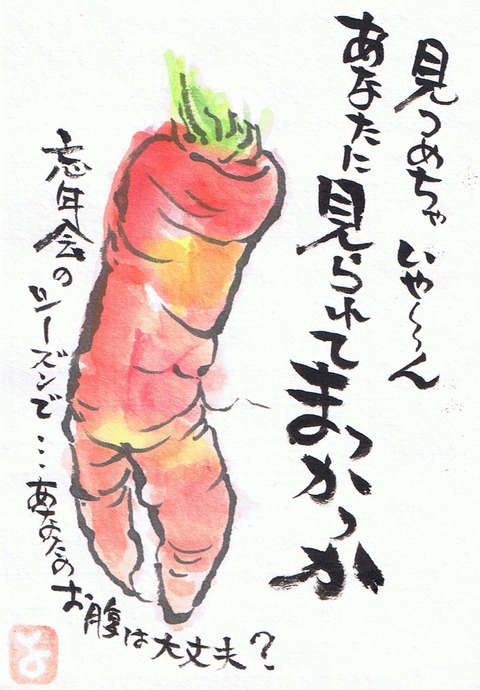 見つめちゃ いや〜ん
あなたに見られてまっかっか
忘年会のシーズンで…あなたのお腹は大丈夫?
と